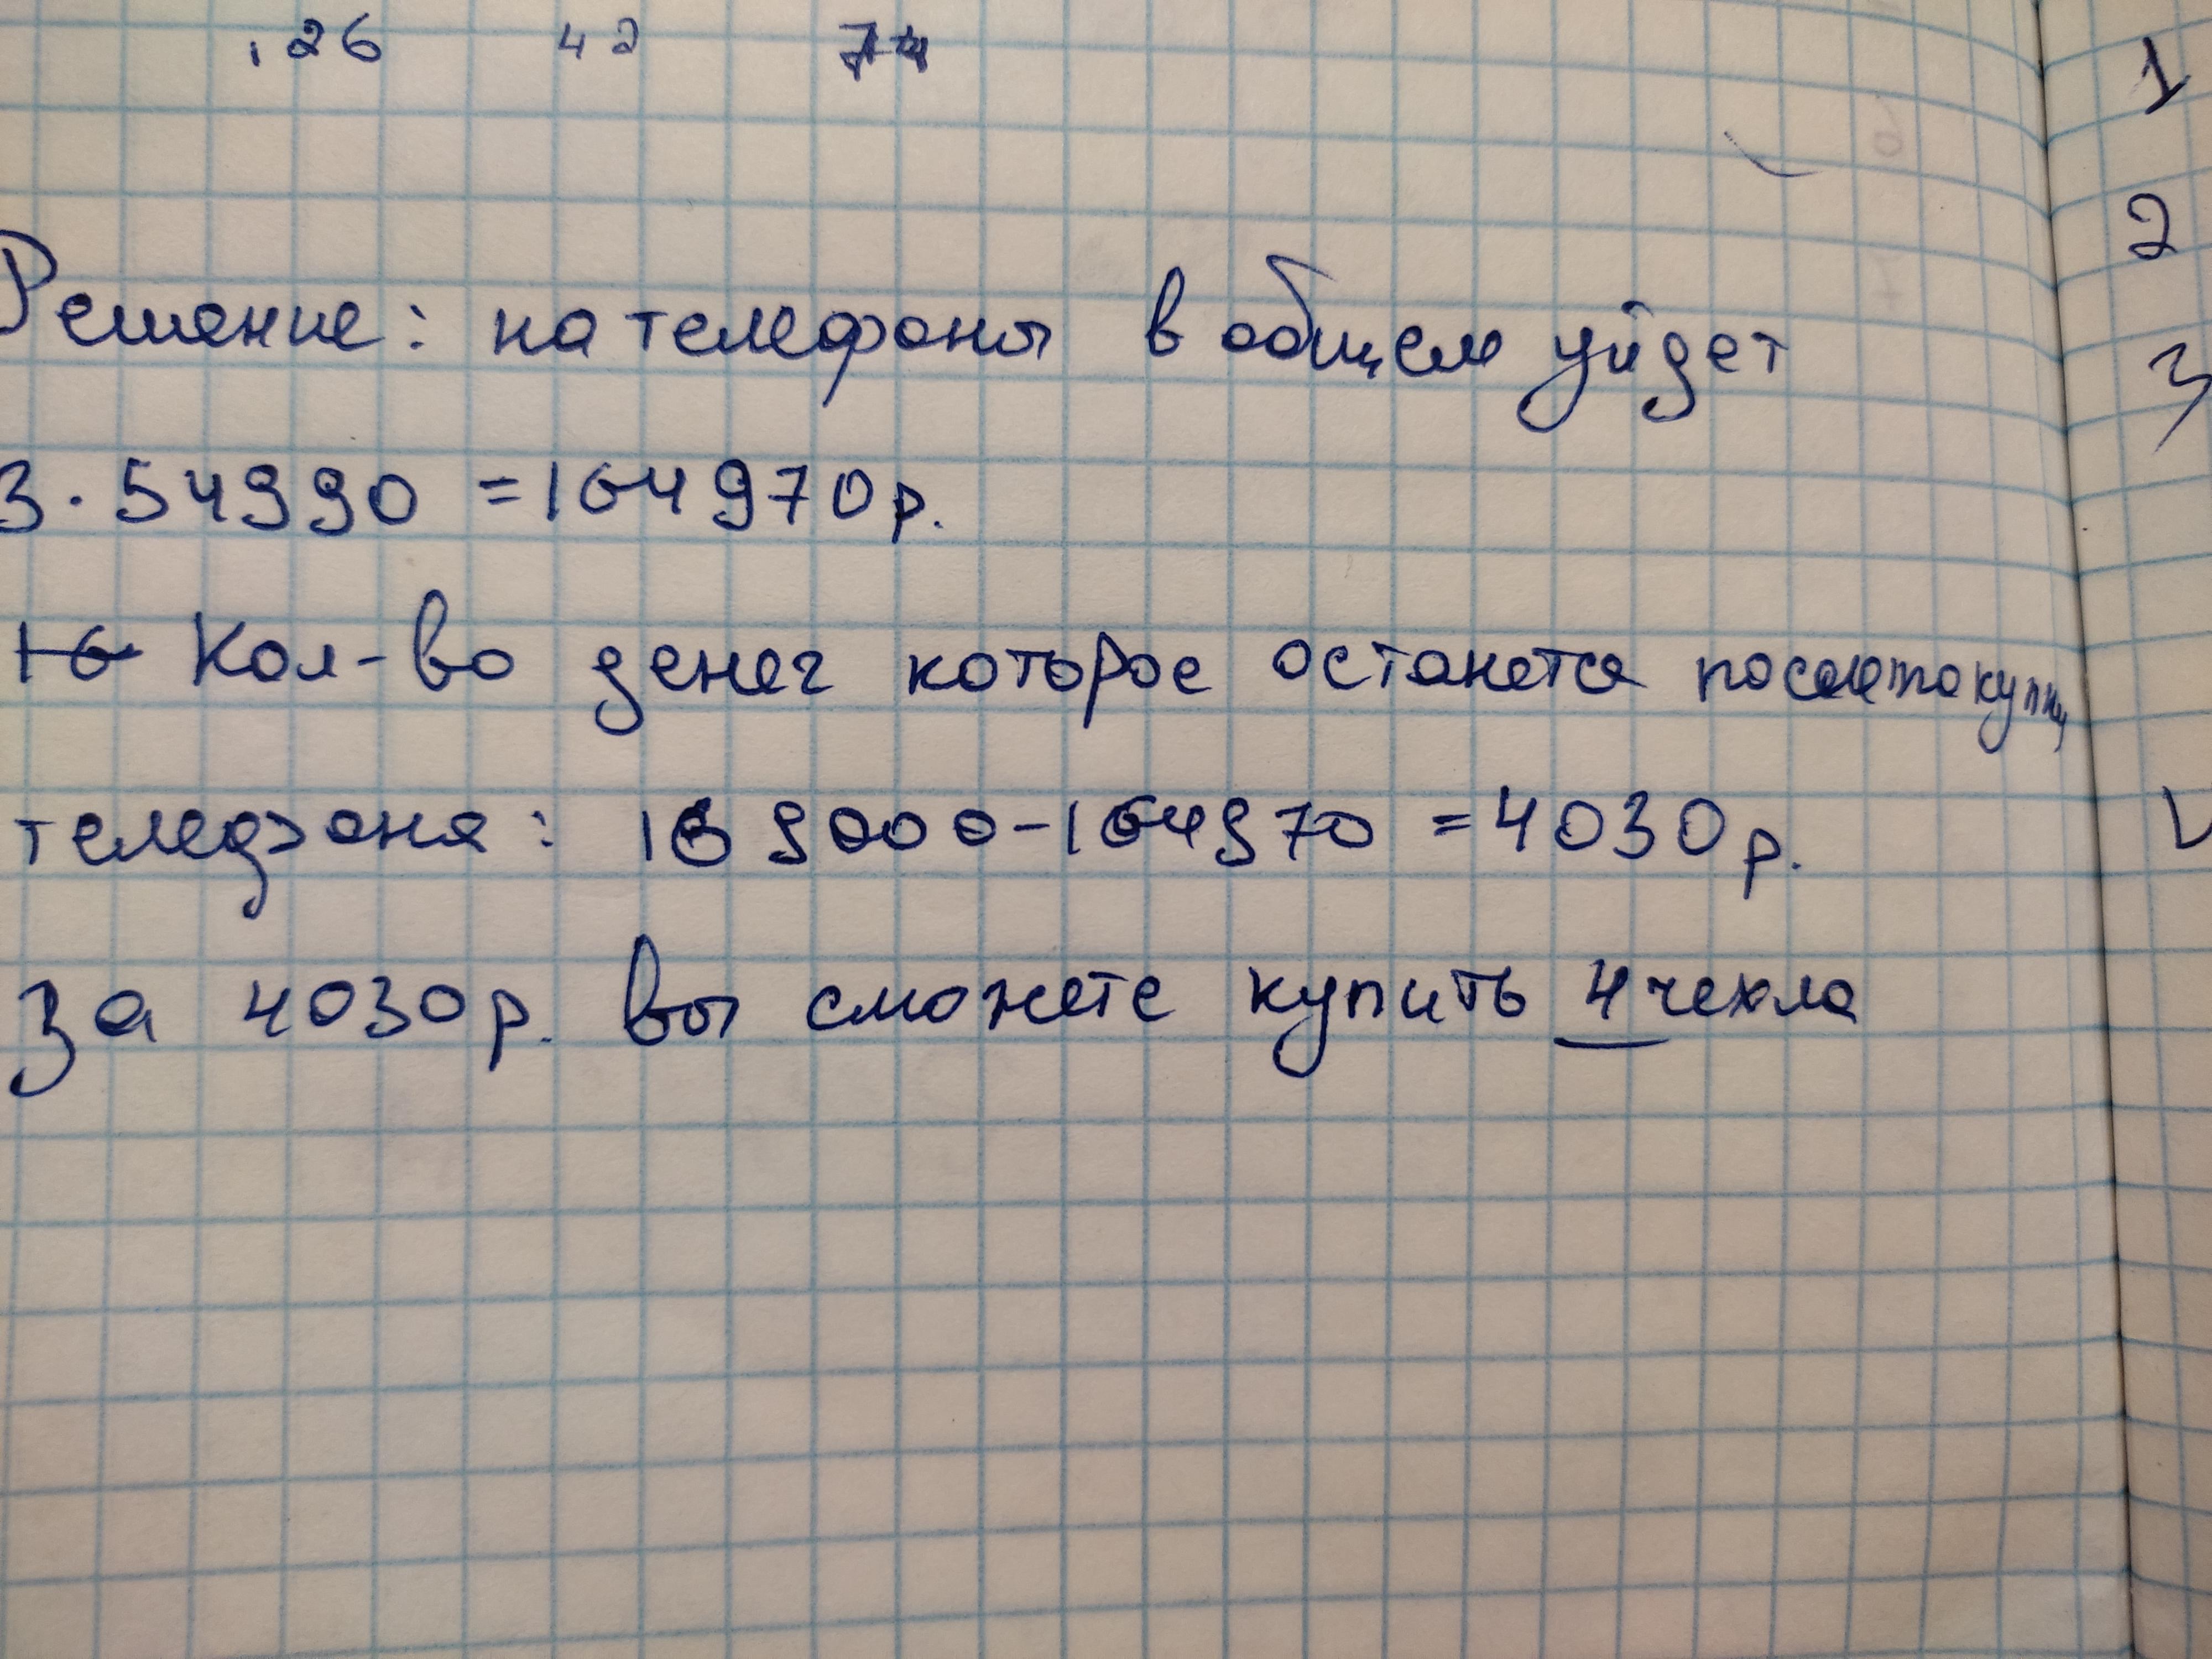 26 42 74
1
2
3
Решение: на телефоны в общем уйдет
3·54990 = 164970р.
16 Кол-во денег которое останется после покупки
телефона: 169000-164970 = 4030р.
За 4030р. вы сможете купить 4 чехла